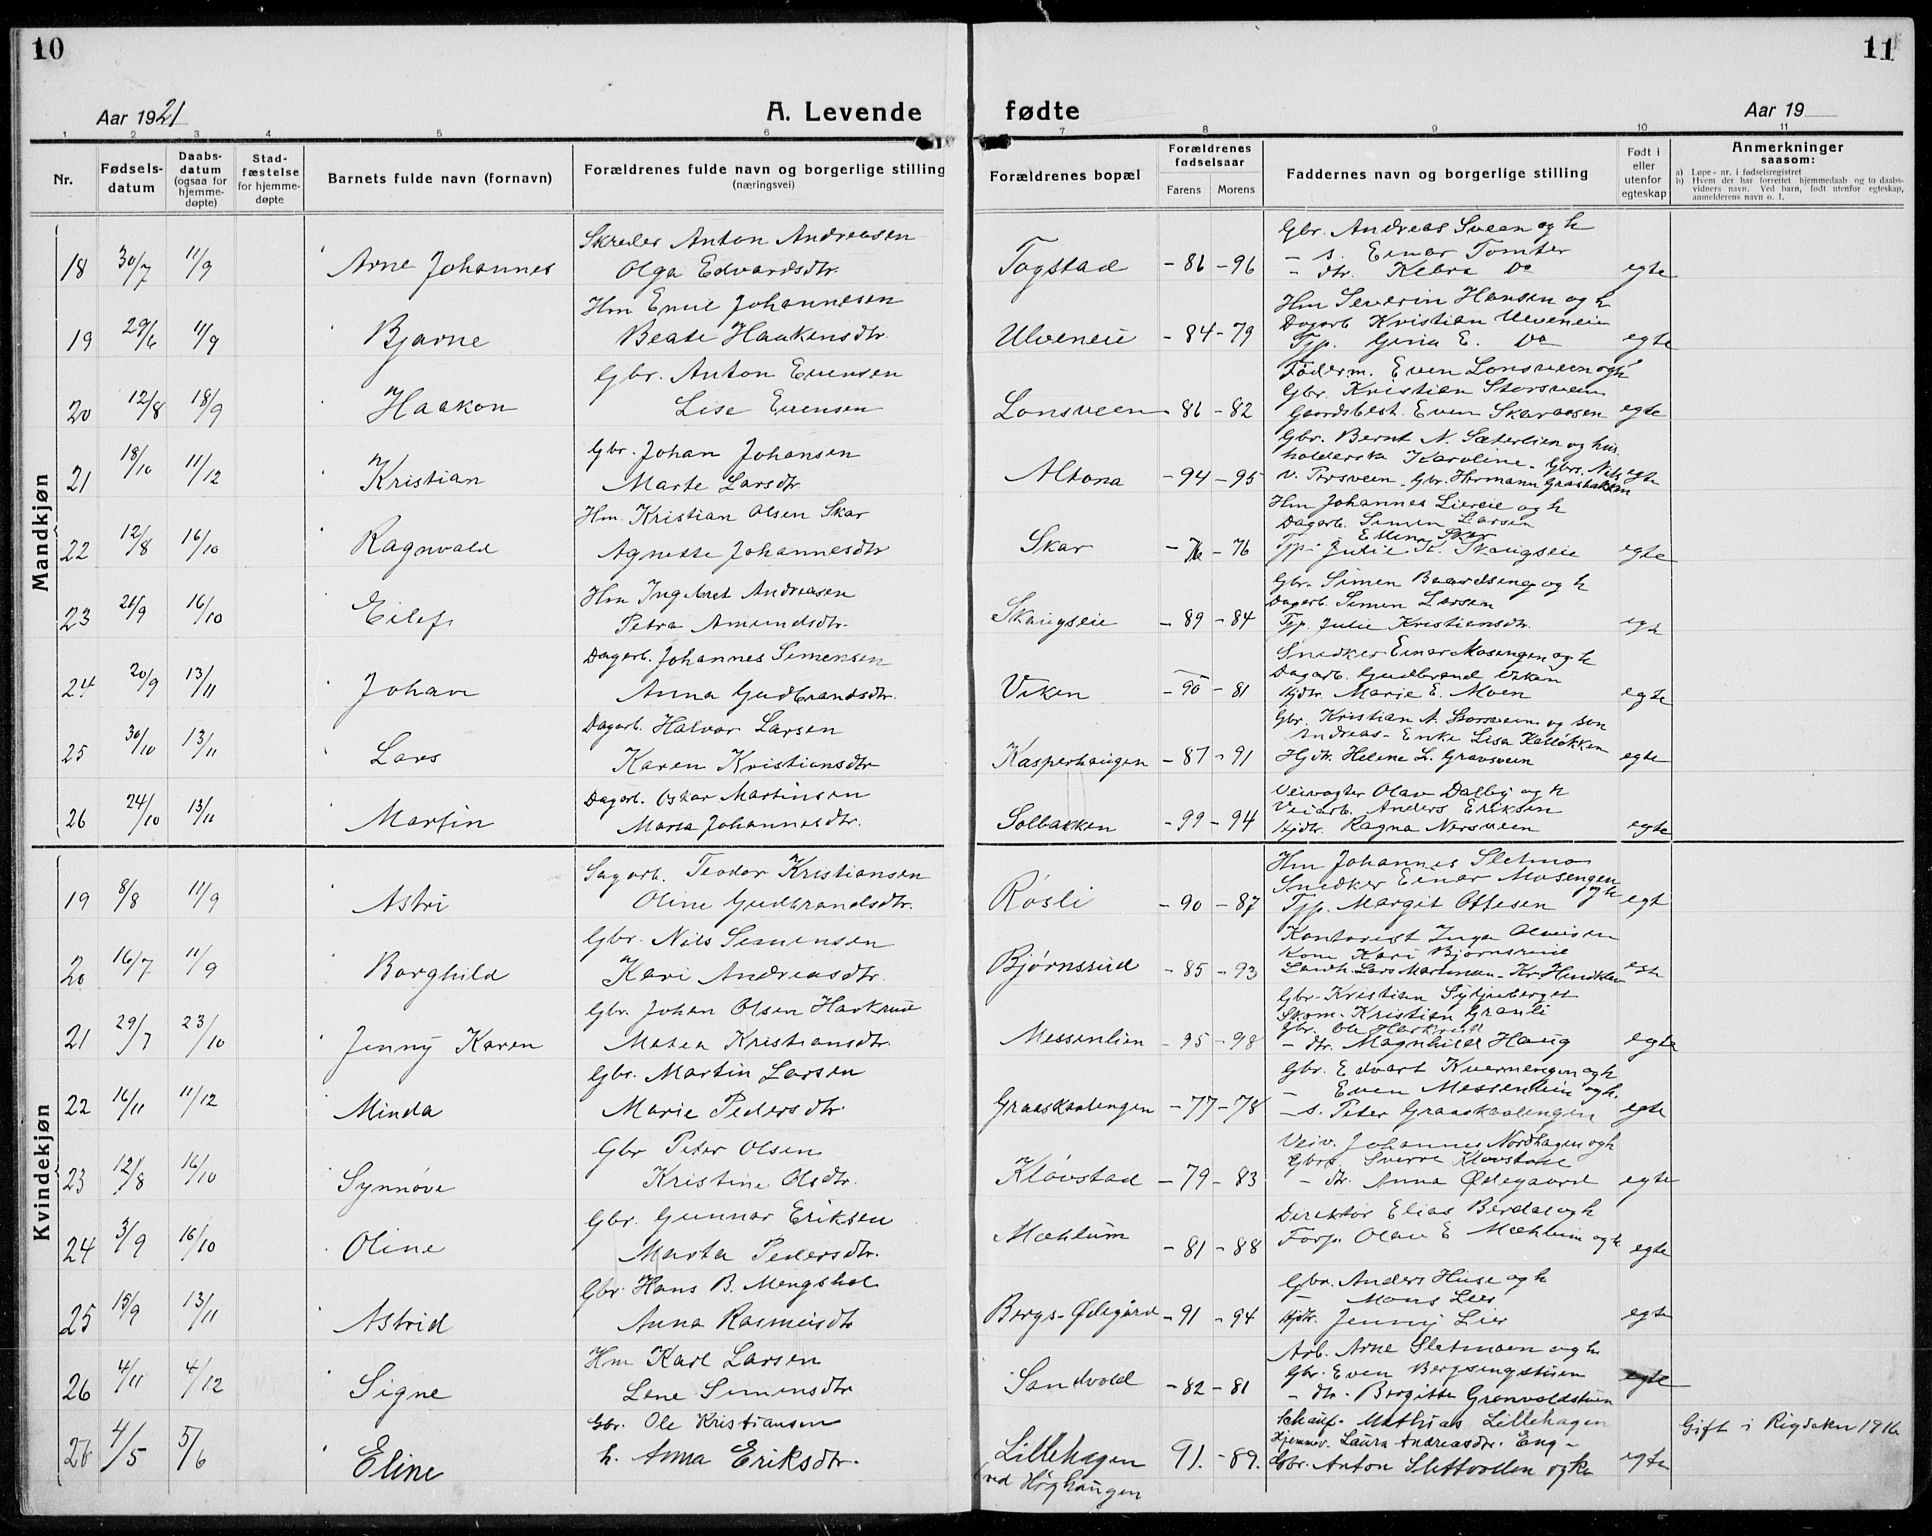 10
11
Aar 1921
A. Levende
fødte
Aar 19
1 2 3 4 5 6 7 8 9 10 11
Nr.
Fødsels-
datum
Daabs-
datum
(ogsaa for
hjemme-
døpte)
Stad-
fæstelse
for hjemme-
døpte
Barnets fulde navn (fornavn)
Forældrenes fulde navn og borgerlige stilling
(næringsvei)
Forældrenes bopæl
Forældrenes
fødselsaar
Farens Morens
Faddernes navn og borgerlige stilling
Født i
eller
utenfor
egteskap
Anmerkninger
saasom:
a) Løpe-nr. i fødselsregistret
b) Hvem der har forrettet hjemmedaab og to daabs-
vidners navn. Ved barn, født utenfor egteskap,
anmelderens navn o. l.
Mandkjøn
18 30/7 11/9 Arne Johannes
Skreder Anton Andreasen
Olga Edvardsdtr.
Togstad - 86 - 96
Gbr. Andreas Sveen og h
- s. Einar Tomter
- dtr. Do
egte
19 29/6 11/9 Bjarne
Hm Emil Johannesen
Beate Haakensdtr.
Ulveneie - 84 - 79
Hm Severin Hansen og h
Dagarb. Kristian Ulveneie
Tjp. Gina E. Do
egte
20 12/8 18/9 Haakon
Gbr. Anton Evensen
Lise Evensen
Lonsveen - 86 - 82
Føderm. Even Lonsveen og h
Gbr. Kristian Storsveen
Gaardsbest. Even Skaraasen
egte
21 18/10 11/12 Kristian
Gbr. Johan Johansen
Marte Larsdtr
Altona - 94 - 95
Gbr. Bernt N. Sæterlien og hus
holderske Karoline - Gbrs. Nils
v. Torsveen - Gbr. Hermann
egte
22 12/8 16/10 Ragnvald
Hm. Kristian Olsen Skar
Agnette Johannesdtr
Skar - 76 - 76
Hm Johannes Liereie og h
Dagarb. Simen Larsen
Ellina Skar
Tjp. Julie K. Skaugseie
egte
23 21/9 16/10 Eilef
Hm Ingebret Andreasen
Petra Amundsdtr.
Skaugseie - 89 - 84
Gbr. Simen Baardseng og h
Dagarb. Simen Larsen
Tjp. Julie Kristiansdtr.
egte
24 20/9 13/11 Johan
Dagarb. Johannes Simensen
Anna Gudbrandsdtr.
Viken - 90 - 81
Snedker Einar Mosengen og h
Dagarb. Gudbrand Viken
Hjdtr. Marie E. Moen
egte
25 30/10 13/11 Lars
Dagarb. Halvor Larsen
Karen Kristiansdtr
Kasperhaugen - 87 - 91
Gbr. Kristian A. Storsveen og son
Andreas - Enke Lisa Kalløkken
Hjdtr. Helene L. Gravsveen
egte
26 24/10 13/11 Martin
Dagarb. Oskar Martinsen
Marta Johannesdtr.
Solbakken - 99 - 94
Veivogter Olav Dalby og h
Veiarb. Anders Eriksen
Hjdtr. Ragna Nersveen
egte
Kvindekjøn
19 8/8 11/9 Astri
Sagarb. Teodor Kristiansen
Oline Gudbrandsdtr.
Røsli - 90 - 87
Hm Johannes Sletmo
Snedker Einar Mosengen
og h
Tjp. Margit Ottesen
egt
20 16/7 11/9 Borghild
Gbr. Nils Simensen
Kari Andreasdtr.
Bjørnsrud - 85 - 93
Kontorist Inga Olavsen
Kone Kari Bjørnsrud
Landh. Lars Martinsen - Kr.
egte
21 29/7 23/10 Jenny Karen
Gbr. Johan Olsen Harkrud
Matea Kristiansdtr.
Messenlien - 95 - 98
Gbr. Kristian Syljuberget
Skom. Kristian Granli
Gbr. Ole Harkrud
- dtr. Magnhild Haug
egte
22 16/11 11/12 Minda
Gbr. Martin Larsen
Marie Pedersdtr.
Graaskaalengen - 77 - 78
Gbr. Edvart Kvernengen og h
- Even Messenlien og h.
- s. Peter Graaskaalengen
egte
23 12/8 16/10 Synnøve
Gbr Peter Olsen
Kristine Olsdtr.
Kløvstad - 79 - 83
Veiv. Johannes Nordhagen og h
Gbrs. Sverre Kløvstad
- dtr. Anna Ødegaard
egte
24 3/9 16/10 Oline
Gbr. Gunnar Eriksen
Marta Pedersdtr.
Mæhlum - 81 - 88
Direktør Elias Berdal og h
Forp. Olav E Mæhlum og h
egte
25 15/9 13/11 Astrid
Gbr. Hans B. Mengshol
Anna Rasmusdtr
Bergs-Ødegård - 91 - 94
Gbr. Anders Huse og h
- Mons Lier
Hjdtr. Jenny Lier
egte
26 4/11 4/12 Signe
Hm Karl Larsen
Lene Simensdtr
Sandvold - 82 - 81
Arb. Arne Sletmoen og h
Gbr. Even Bergsengstuen
- dtr. Birgitte Grønvoldstuen
egte
26 4/5 5/6 Eline
Gbr. Ole Kristiansen
h. Anna Eriksdtr.
Lillehagen
ved Høghaugen
91. - 89.
Schauf. Mathias Lillehagen
Hjemmev. Laura Andreasdtr. Eng -
Gbr. Anton Slettvolden og ko
egte
Gift i Rigsaker 1916